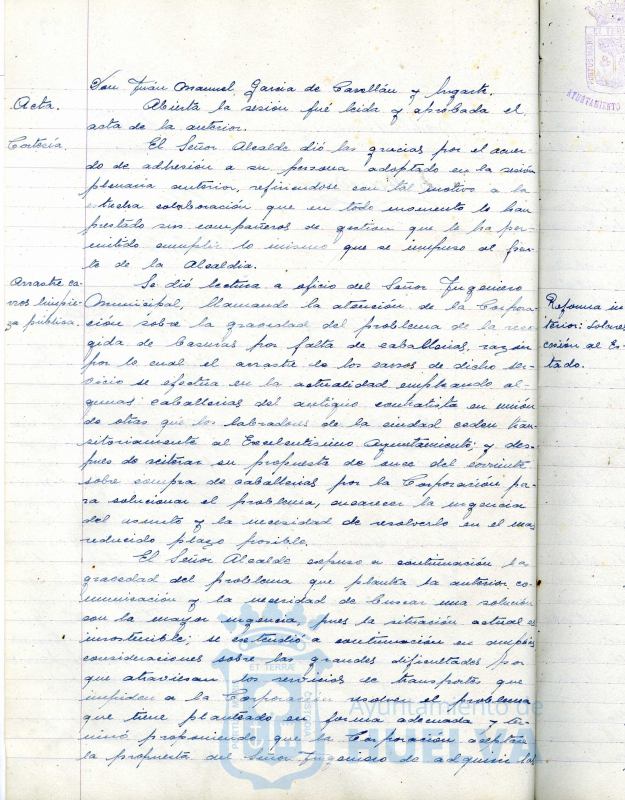 Don Juan Manuel García de Carellán y Ugarte.
Acta.
Abierta la sesión fué leída y aprobada el
acta de la anterior.
Cortesía.
El Señor Alcalde dió las gracias por el acuer-
do de adhesión a su persona adoptado en la sesión
plenaria anterior, refiriéndose con tal motivo a la
estrecha colaboración que en todo momento le han
prestado sus compañeros de gestion que le ha per-
mitido cumplir lo mismo que se impuso al fren-
te de la Alcaldia.
Arrastre ca-
rros limpie-
za pública.
Se dió lectura a oficio del Señor Ingeniero
Municipal, llamando la atención de la Corpora-
ción sobre la gravedad del problema de la reco-
gida de basuras por falta de caballerias, razón
por lo cual el arrastre de los carros de dicho ser-
vicio se efectua en la actualidad empleando al-
gunas caballerias del antiguo contratista en unión
de otras que los labradores de la ciudad ceden tran-
sitoriamente al Excelentísimo Ayuntamiento; y des-
pues de reiterar su propuesta de once del corriente
sobre compra de caballerias por la Corporación pa-
ra solucionar el problema, encarecer la urgencia
del asunto y la necesidad de resolverlo en el mas
reducido plazo posible.
El Señor Alcalde expuso a continuación la
gravedad del problema que plantea la anterior co-
municación y la necesidad de buscar una solución
con la mayor urgencia, pues la situación actual es
insostenible; se extendió a continuación en amplias
consideraciones sobre las grandes dificultades por
que atraviesan los servicios de transportes que
impiden a la Corporación resolver el problema
que tiene planteado en forma adecuada y ter-
minó proponiendo que la Corporación aceptara
la propuesta del Señor Ingeniero de adquirir las
Reforma in-
terior: Solares
cesión al Es-
tado.
AYUNTAMIENTO
Ayuntamiento de
HUELVA